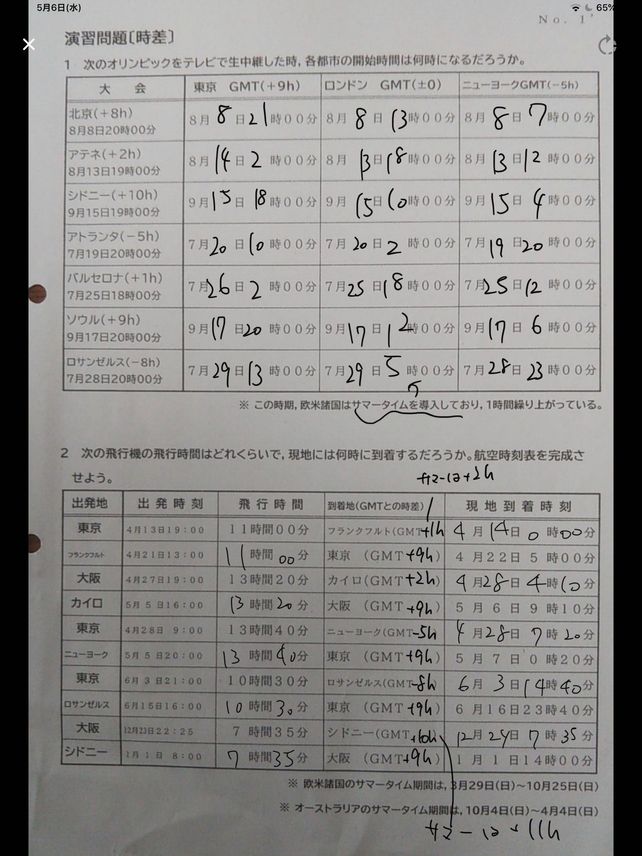 5月6日(水)
65%
No. 1'
演習問題〔時差〕
1 次のオリンピックをテレビで生中継した時，各都市の開始時間は何時になるだろうか。
大 会 東京 GMT(+9h) ロンドン GMT(±0) ニューヨークGMT(−5h)
北京(+8h)
8月8日20時00分 8月8日21時00分 8月8日13時00分 8月8日7時00分
アテネ(+2h)
8月13日19時00分 8月14日2時00分 8月13日18時00分 8月13日12時00分
シドニー(+10h)
9月15日19時00分 9月15日18時00分 9月15日10時00分 9月15日4時00分
アトランタ(−5h)
7月19日20時00分 7月20日10時00分 7月20日2時00分 7月19日20時00分
バルセロナ(+1h)
7月25日18時00分 7月26日2時00分 7月25日18時00分 7月25日12時00分
ソウル(+9h)
9月17日20時00分 9月17日20時00分 9月17日12時00分 9月17日6時00分
ロサンゼルス(−8h)
7月28日20時00分 7月29日13時00分 7月29日5時00分 7月28日23時00分
※ この時期，欧米諸国はサマータイムを導入しており，1時間繰り上がっている。
2 次の飛行機の飛行時間はどれくらいで，現地には何時に到着するだろうか。航空時刻表を完成さ
せよう。
サマータイム+2h
出発地 出発時刻 飛行時間 到着地(GMTとの時差) 現地到着時刻
東京 4月13日19:00 11時間00分 フランクフルト(GMT+1h) 4月14日0時00分
フランクフルト 4月21日13:00 11時間00分 東京(GMT+9h) 4月22日5時00分
大阪 4月27日19:00 13時間20分 カイロ(GMT+2h) 4月28日4時10分
カイロ 5月5日16:00 13時間20分 大阪(GMT+9h) 5月6日9時10分
東京 4月28日9:00 13時間40分 ニューヨーク(GMT-5h) 4月28日7時20分
ニューヨーク 5月5日20:00 13時間40分 東京(GMT+9h) 5月7日0時20分
東京 6月3日21:00 10時間30分 ロサンゼルス(GMT-8h) 6月3日14時40分
ロサンゼルス 6月15日16:00 10時間30分 東京(GMT+9h) 6月16日23時40分
大阪 12月23日22:25 7時間35分 シドニー(GMT+10h) 12月24日7時35分
シドニー 1月1日8:00 7時間35分 大阪(GMT+9h) 1月1日14時00分
※ 欧米諸国のサマータイム期間は，3月29日(日)～10月25日(日)
※ オーストラリアのサマータイム期間は，10月4日(日)～4月4日(日)